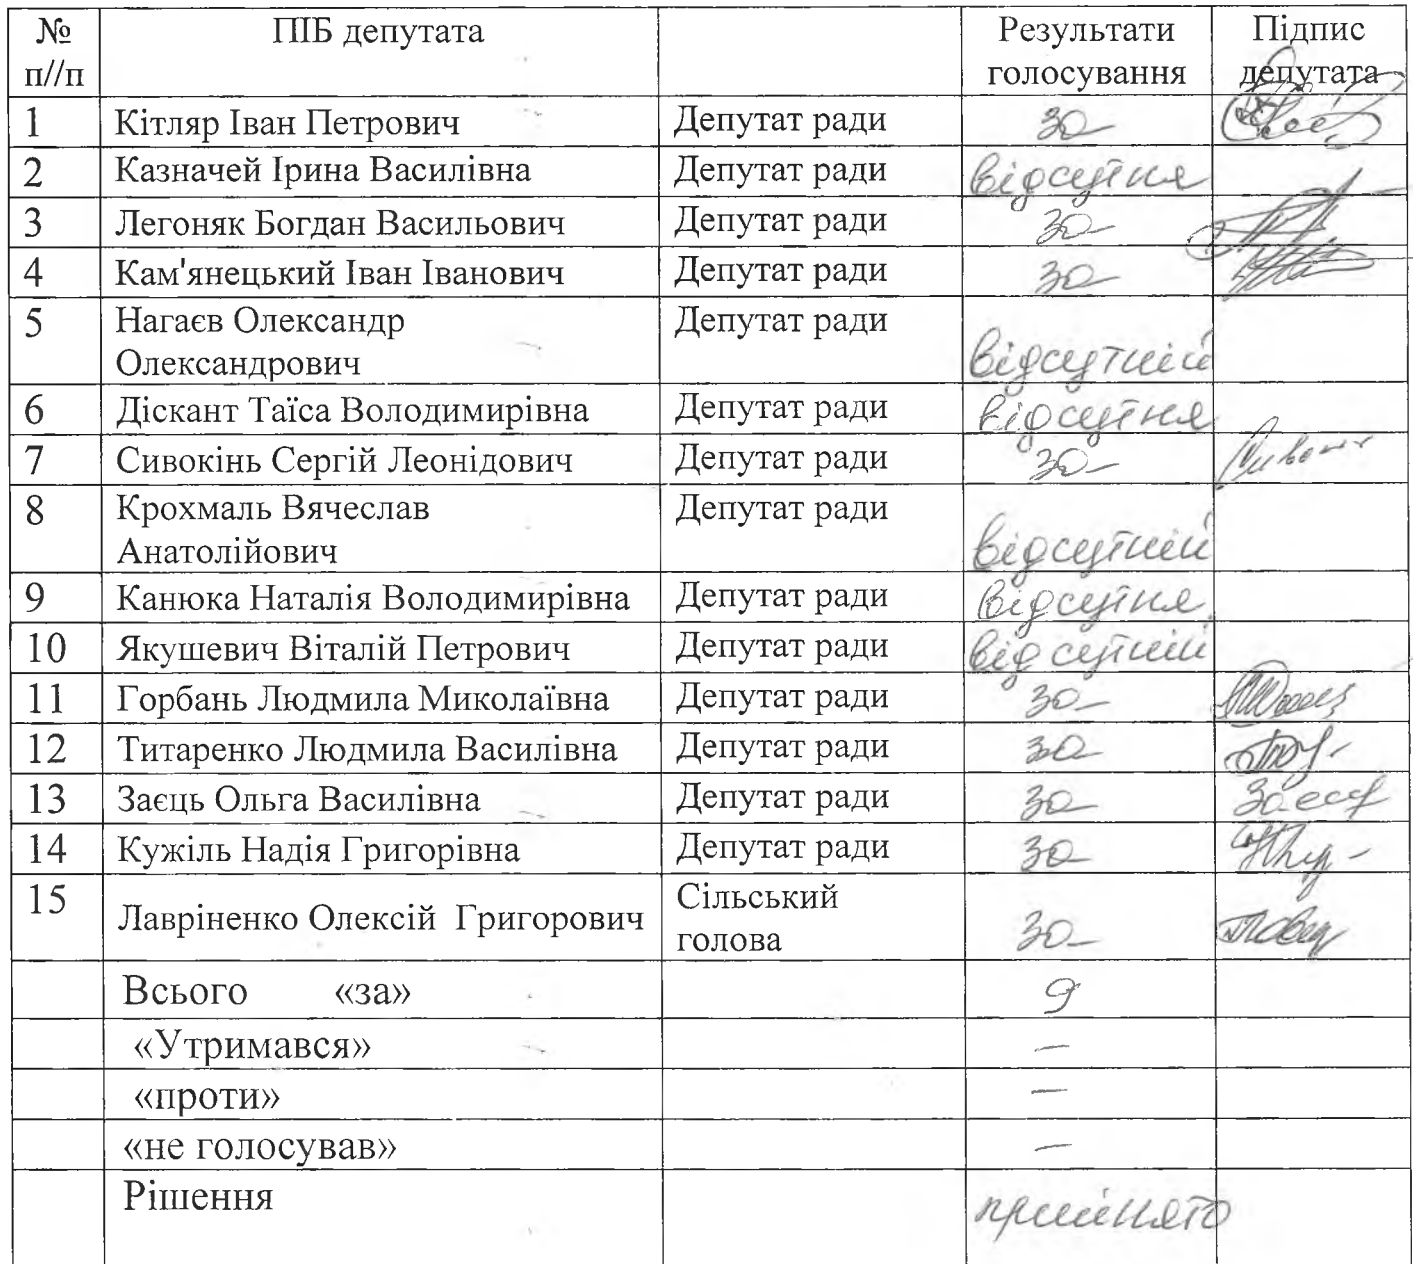 № п//п ПІБ депутата Результати голосування Підпис депутата
1 Кітляр Іван Петрович Депутат ради за
2 Казначей Ірина Василівна Депутат ради відсутня
3 Легоняк Богдан Васильович Депутат ради за
4 Кам'янецький Іван Іванович Депутат ради за
5 Нагаєв Олександр Олександрович Депутат ради відсутній
6 Діскант Таїса Володимирівна Депутат ради відсутня
7 Сивокінь Сергій Леонідович Депутат ради за
8 Крохмаль Вячеслав Анатолійович Депутат ради відсутній
9 Канюка Наталія Володимирівна Депутат ради відсутня
10 Якушевич Віталій Петрович Депутат ради відсутній
11 Горбань Людмила Миколаївна Депутат ради за
12 Титаренко Людмила Василівна Депутат ради за
13 Заєць Ольга Василівна Депутат ради за
14 Кужіль Надія Григорівна Депутат ради за
15 Лавріненко Олексій Григорович Сільський голова за
Всього «за» 9
«Утримався» —
«проти» —
«не голосував» —
Рішення прийнято